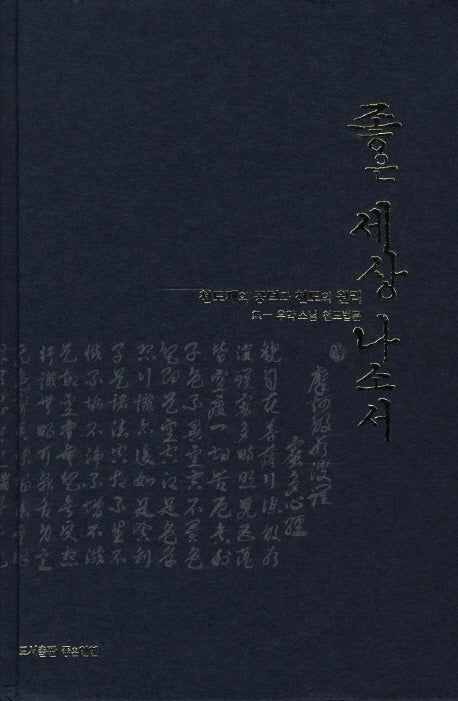 좋은 세상 나소서
천도재의 공덕과 천도의 원리
無一 우학 스님 천도법문
摩訶般若波羅
蜜多心經
觀自在菩薩行深般若
波羅蜜多時照見五蘊
皆空度一切苦厄舍利
子色不異空空不異色
色即是空空即是色受
想行識亦復如是舍利
子是諸法空相不生不
滅不垢不淨不增不減
是故空中無色無受想
行識無眼耳鼻舌身意
도서출판 좋은인연